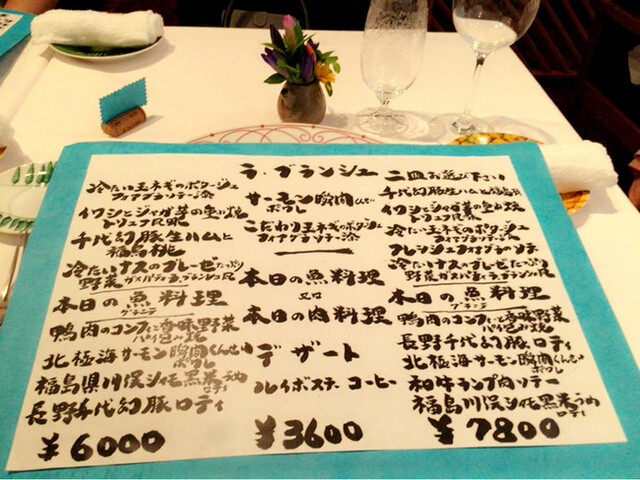 ラ・ブランシュ
冷たい玉ネギのポタージュ
フォアグラソテー添
イワシとジャガ芋の重ね焼
トリュフ風味
千代幻豚生ハムと
福島桃
冷たいナスのブレーゼたっぷり
野菜ガスパチョ ラ・ブランシュ風
本日の魚料理
グラニテ
鴨肉のコンフィと香味野菜
パイ包み焼
北極海サーモン瞬間くんせい
ポワレ
福島県川俣シャモ黒米うめ
ロティ
長野千代幻豚ロティ
¥6000
サーモン瞬間くんせい
ポワレ
こだわり玉ネギのポタージュ
フォアグラソテー添
本日の魚料理
又は
本日の肉料理
デザート
ルイボスティー コーヒー
¥3600
二皿お選び下さい
千代幻豚生ハムと福島桃
イワシとジャガ芋の重ね焼
トリュフ風味
冷たい玉ネギのポタージュ
フレッシュフォアグラのソテー
冷たいナスのブレーゼたっぷり
野菜ガスパチョ ラ・ブランシュ風
本日の魚料理
グラニテ
鴨肉のコンフィと香味野菜
パイ包み焼
長野千代幻豚ロティ
北極海サーモン瞬間くんせい
ポワレ
和牛ランプ肉ソテー
福島川俣シャモ黒米うめ
ロティ
¥7800